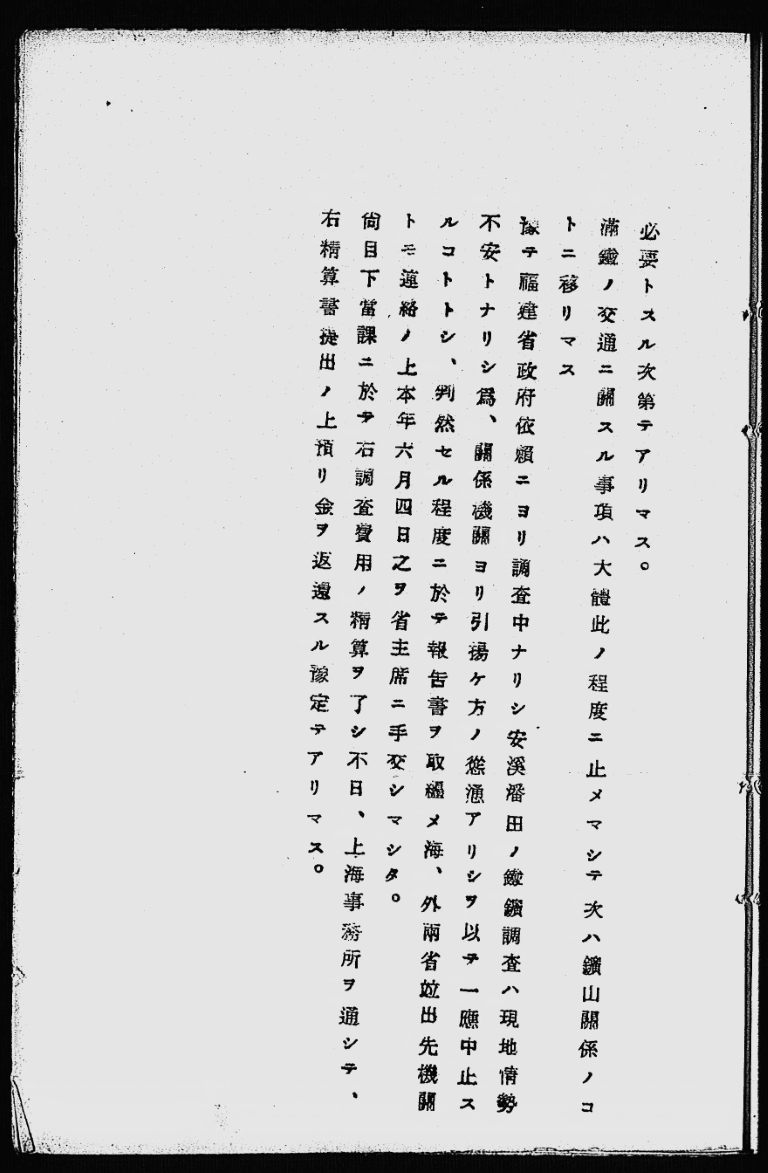 必要トスル次第テアリマス。
滿鐵ノ交通ニ關スル事項ハ大體此ノ程度ニ止メマシテ次ハ鑛山關係ノコ
トニ移リマス
豫テ福建省政府依賴ニヨリ調査中ナリシ安溪潘田ノ鐵鑛調査ハ現地情勢
不安トナリシ爲、關係機關ヨリ引揚ケ方ノ慫慂アリシヲ以テ一應中止ス
ルコトトシ、判然セル程度ニ於テ報告書ヲ取纒メ海、外兩省竝出先機關
トモ連絡ノ上本年六月四日之ヲ省主席ニ手交シマシタ。
尙目下當課ニ於テ右調査費用ノ精算ヲ了シ不日、上海事務所ヲ通シテ、
右精算書提出ノ上預リ金ヲ返還スル豫定テアリマス。